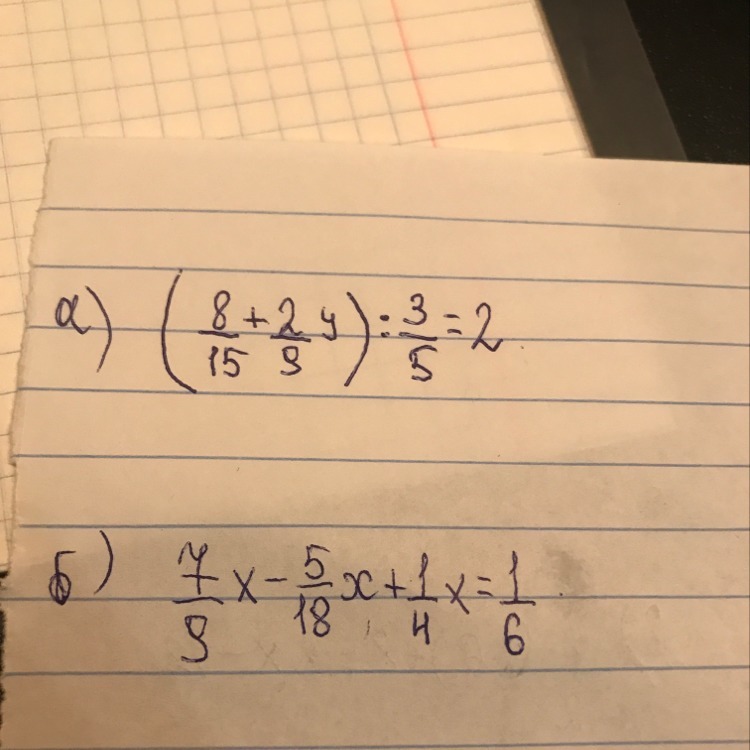 а) (8/15 + 2/9 y) : 3/5 = 2
б) 7/9 x - 5/18 x + 1/4 x = 1/6